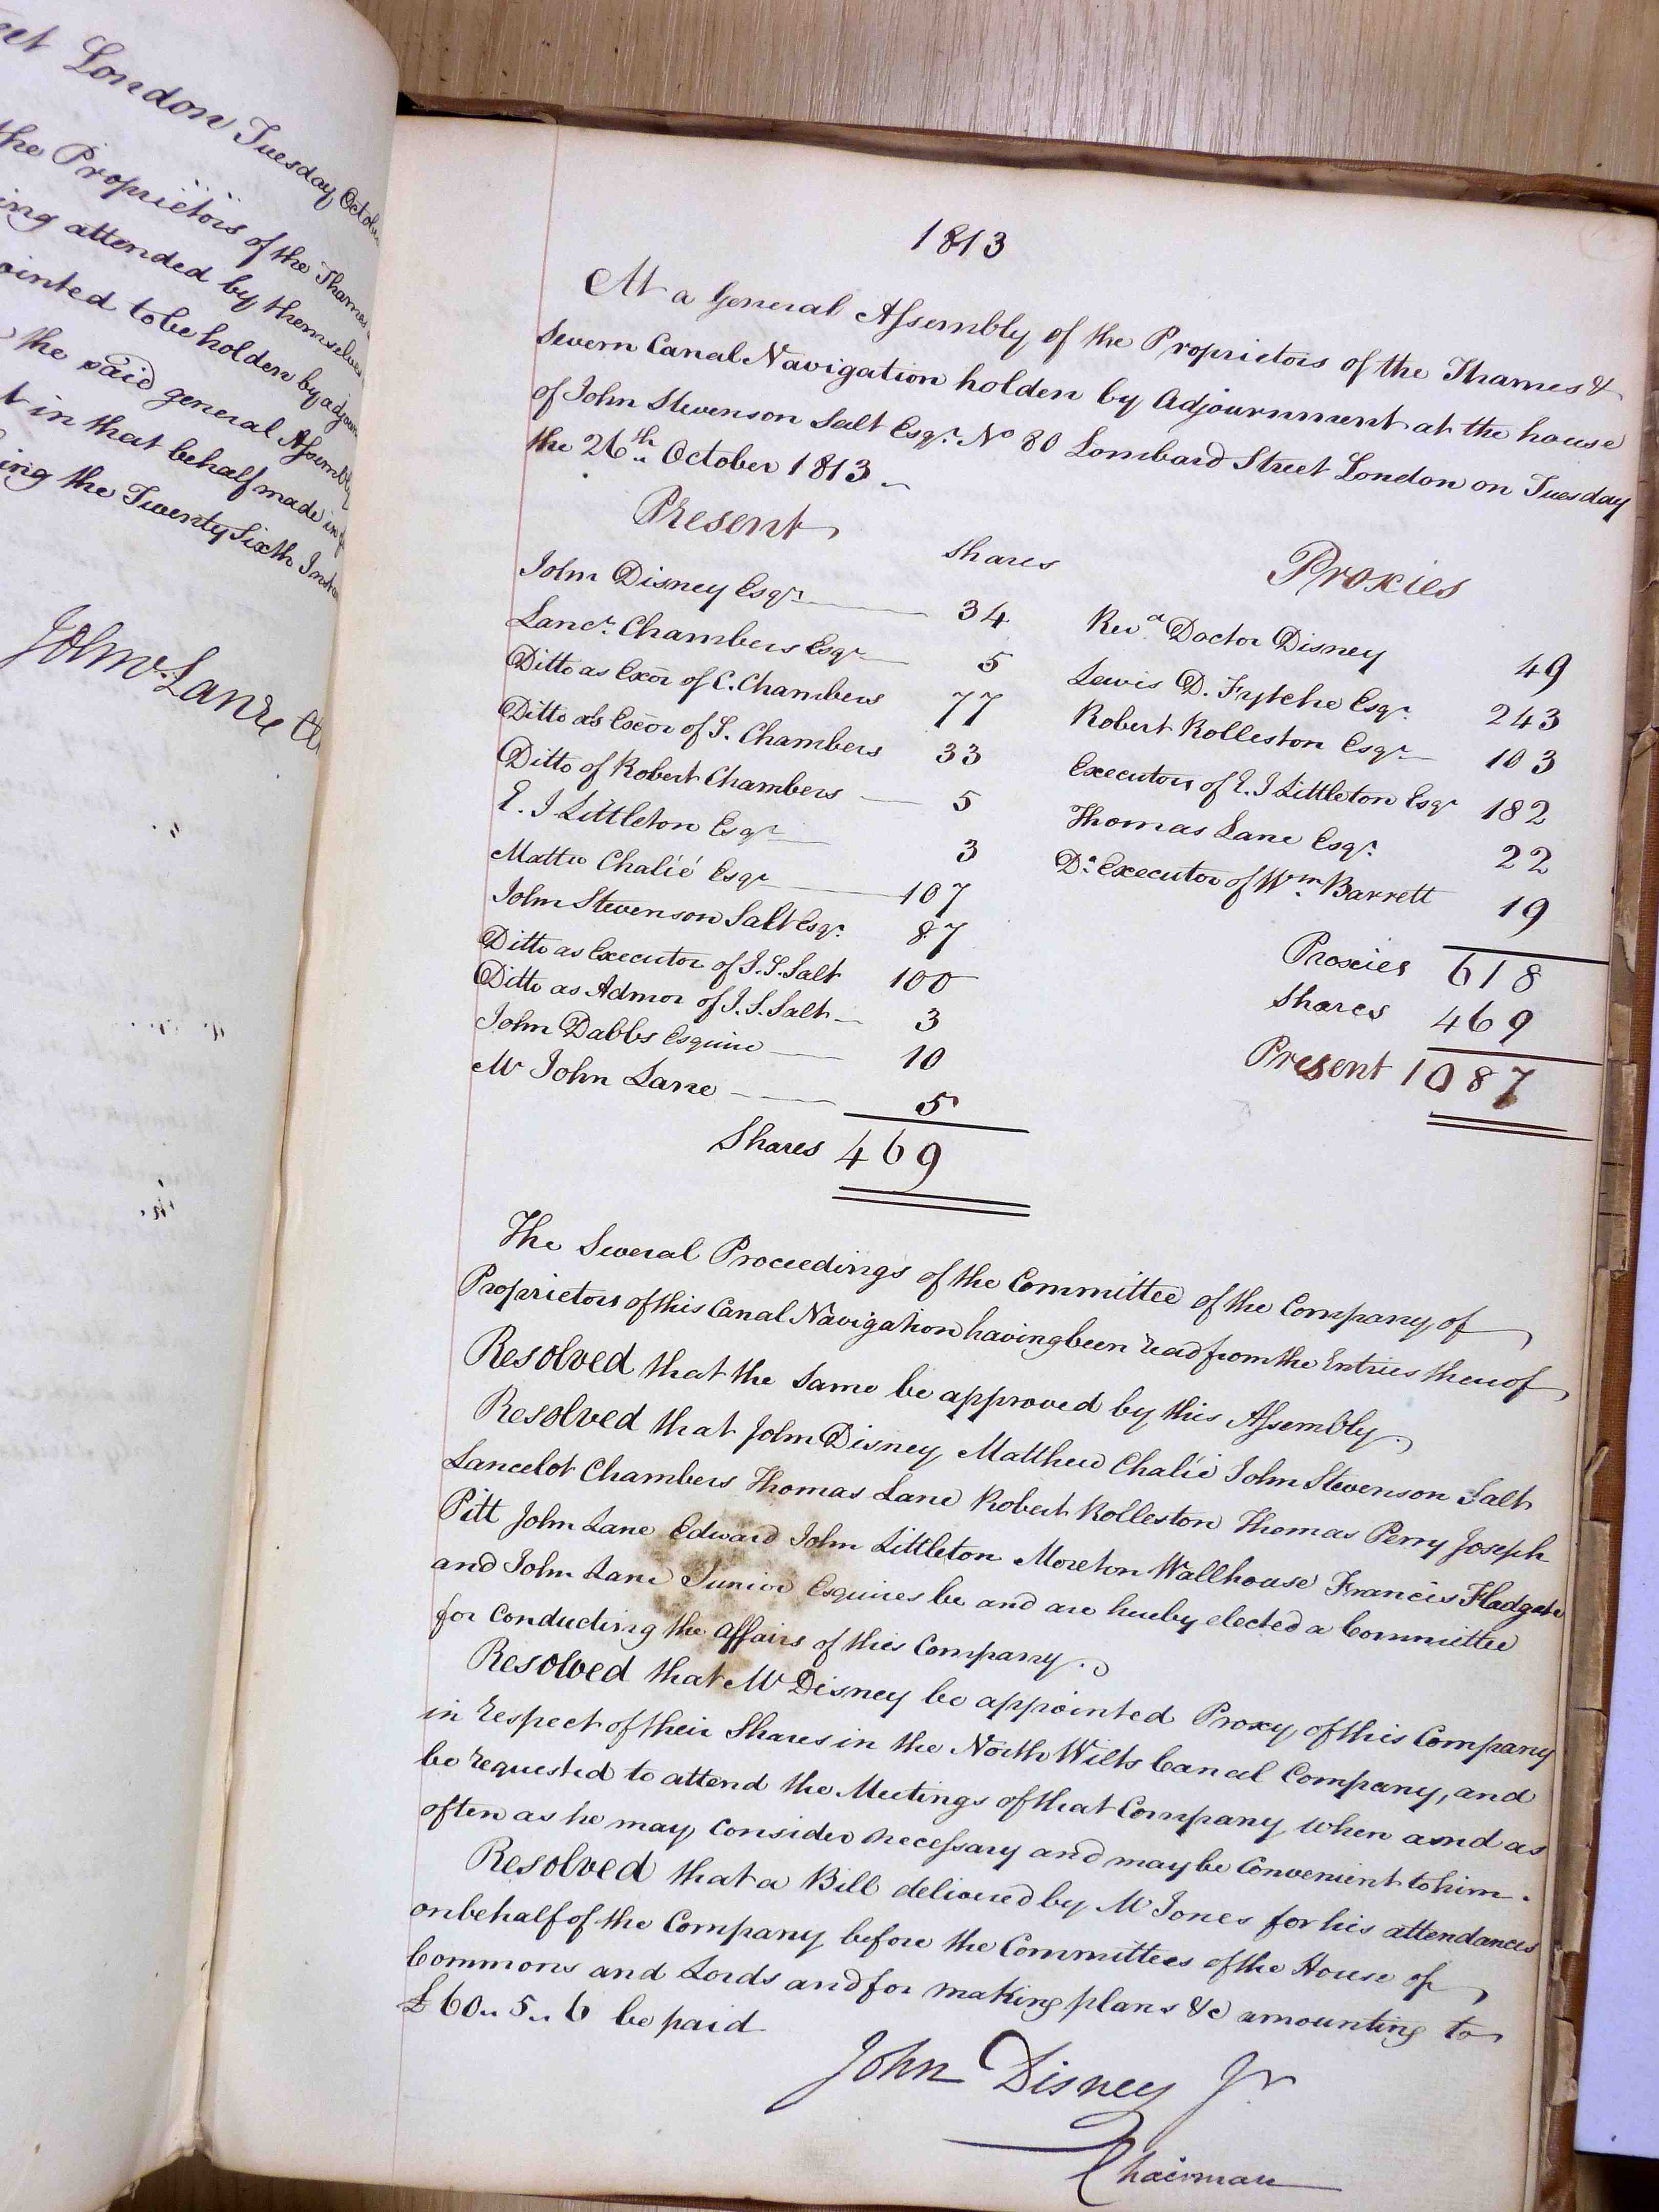 eet London Tuesday Octob
the Proprietors of the Thames
ing attended by themselves
ointed to be holden by adjourn
the said general Assembly
t in that behalf made in
ing the Twenty Sixth Insta
John Lane
1813
At a General Assembly of the Proprietors of the Thames &
Severn Canal Navigation holden by Adjournment at the house
of John Stevenson Salt Esqr. No 80 Lombard Street London on Tuesday
the 26th October 1813
Present
Shares
John Disney Esqr. 34
Lanct. Chambers Esqr 5
Ditto as Exor of C. Chambers 77
Ditto as Excor of S. Chambers 33
Ditto of Robert Chambers 5
E. J Littleton Esqr 3
Mattw Chalié Esqr 107
John Stevenson Salt Esqr. 87
Ditto as Executor of J. S. Salt 100
Ditto as Admor of J. S. Salt 3
John Dabbs Esquire 10
Mr John Lane 5
Shares 469
Proxies
Revd Doctor Disney 49
Lewis D. Fytche Esqr. 243
Robert Rolleston Esqr 103
Executors of E. J Littleton Esqr 182
Thomas Lane Esqr. 22
Do. Executor of Wm. Barrett 19
Proxies 618
Shares 469
Present 1087
The Several Proceedings of the Committee of the Company of
Proprietors of this Canal Navigation having been read from the Entries thereof
Resolved that the same be approved by this Assembly.
Resolved that John Disney Matthew Chalié John Stevenson Salt
Lancelot Chambers Thomas Lane Robert Rolleston Thomas Perry Joseph
Pitt John Lane Edward John Littleton Moreton Wallhouse Francis Fladgate
and John Lane Junior Esquires be and are hereby elected a Committee
for conducting the affairs of this Company.
Resolved that Mr Disney be appointed Proxy of this Company
in respect of their Shares in the North Wilts Canal Company, and
be requested to attend the Meetings of that Company when amd as
often as he may consider necessary and may be Convenient to him.
Resolved that a Bill delivered by Mr Jones for his attendances
on behalf of the Company before the Committees of the House of
Commons and Lords and for making plans &c amounting to
£60.. 5.. 6 be paid
John Disney Jr
Chairman